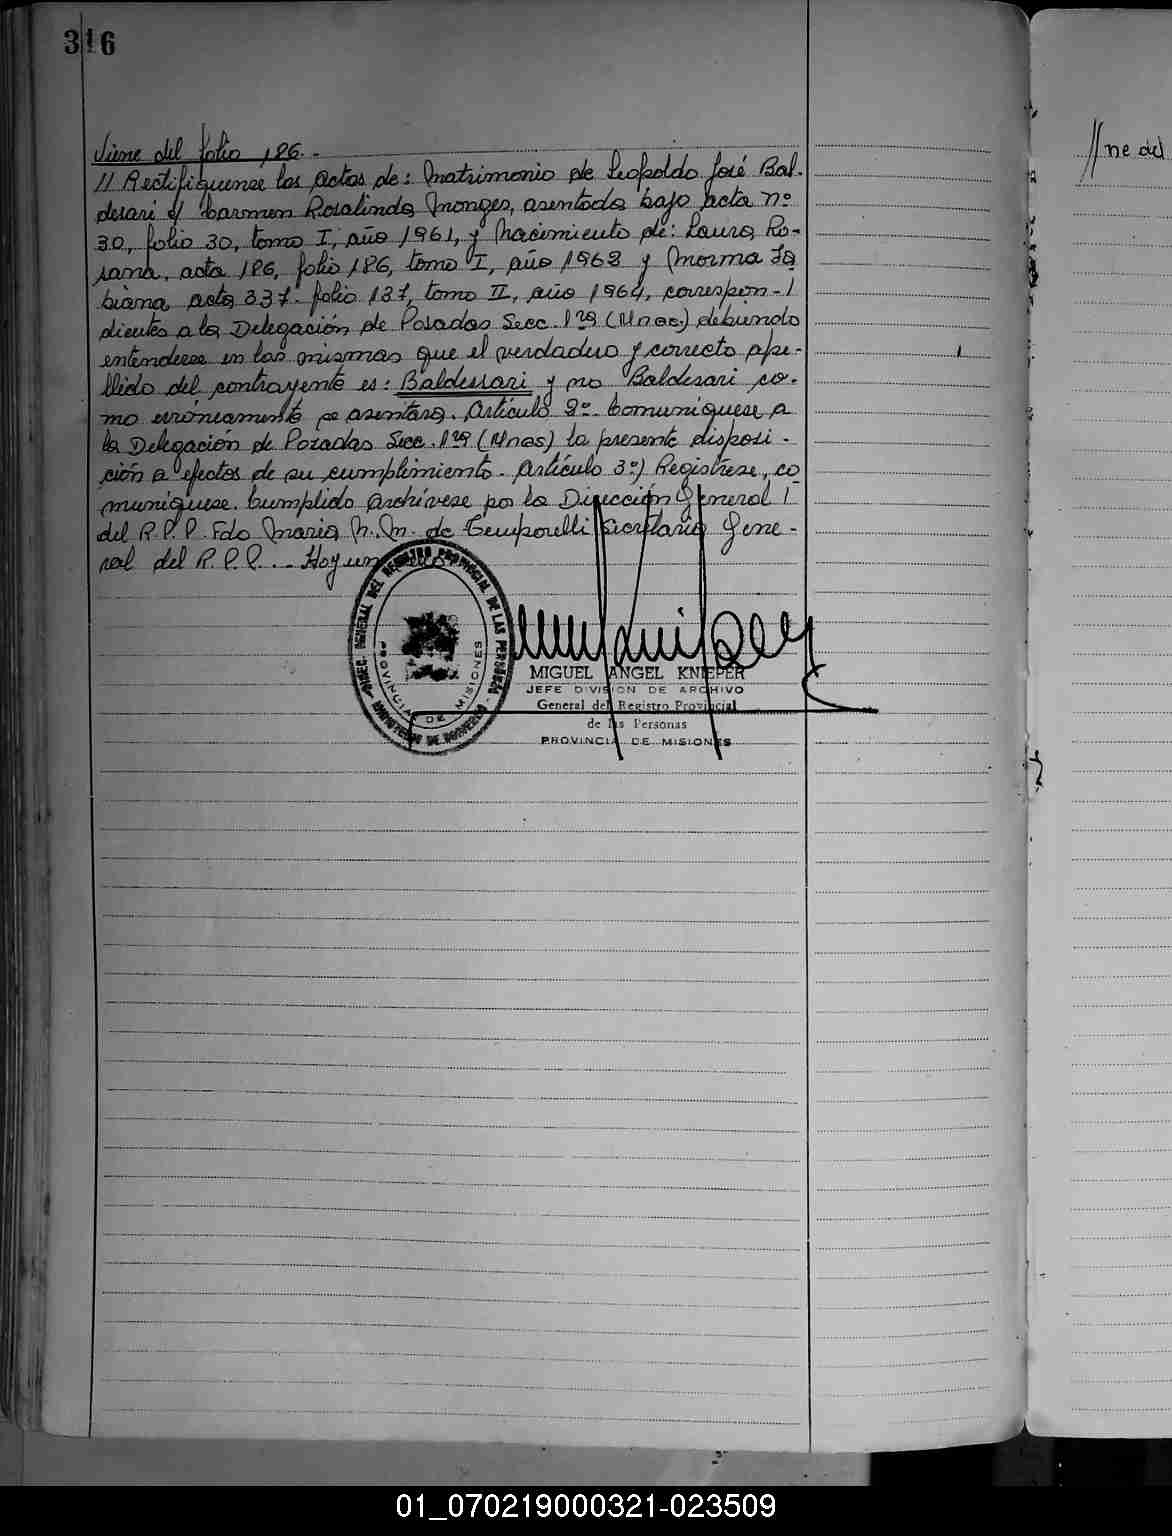 316
Viene del folio 186.-
// Rectifiquense las actas de: Matrimonio de Leopoldo José Bal-
desari c/ Carmen Rosalinda Monges, asentada bajo acta nº
30, folio 30, tomo I, año 1961, y Nacimiento de: Laura Ro-
sana, acta 186, folio 186, tomo I, año 1963 y Norma Fa
biana acta 337- folio 137, tomo II, año 1964, correspon-/
dientes a la Delegación de Posadas Secc. 1ra (Mnes.) debiendo
entenderse en las mismas que el verdadero y correcto ape-
llido del contrayente es: Baldessari y no Baldesari co-
mo erróneamente se asentara. Artículo 2º- Comuníquese a
la Delegación de Posadas Secc. 1ra (Mnes) la presente disposi-
ción a efectos de su cumplimiento. Artículo 3º) Regístrese, co
muníquese. Cumplido archívese por la Dirección General /
del R.P.P. Fdo María N. M. de Temporelli Secretaria Gene-
ral del R.P.P. .- Hay un sello.
DIREC. GENERAL DEL REGISTRO PROVINCIAL DE LAS PERSONAS
PROVINCIA DE MISIONES
MINISTERIO DE GOBIERNO
MIGUEL ANGEL KNIEPER
JEFE DIVISION DE ARCHIVO
General del Registro Provincial
de las Personas
PROVINCIA DE MISIONES
// ne del
01_070219000321-023509